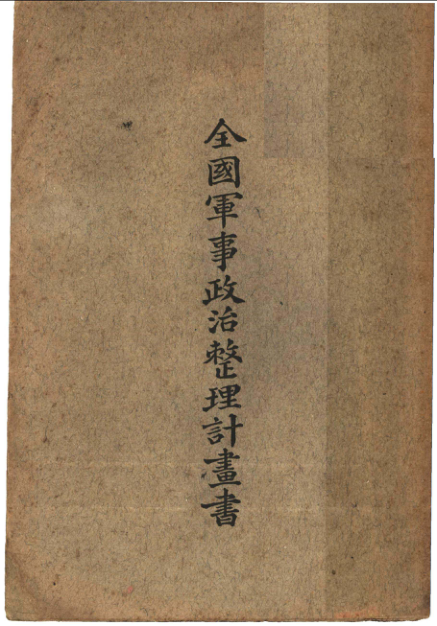 全國軍事政治整理計畫書